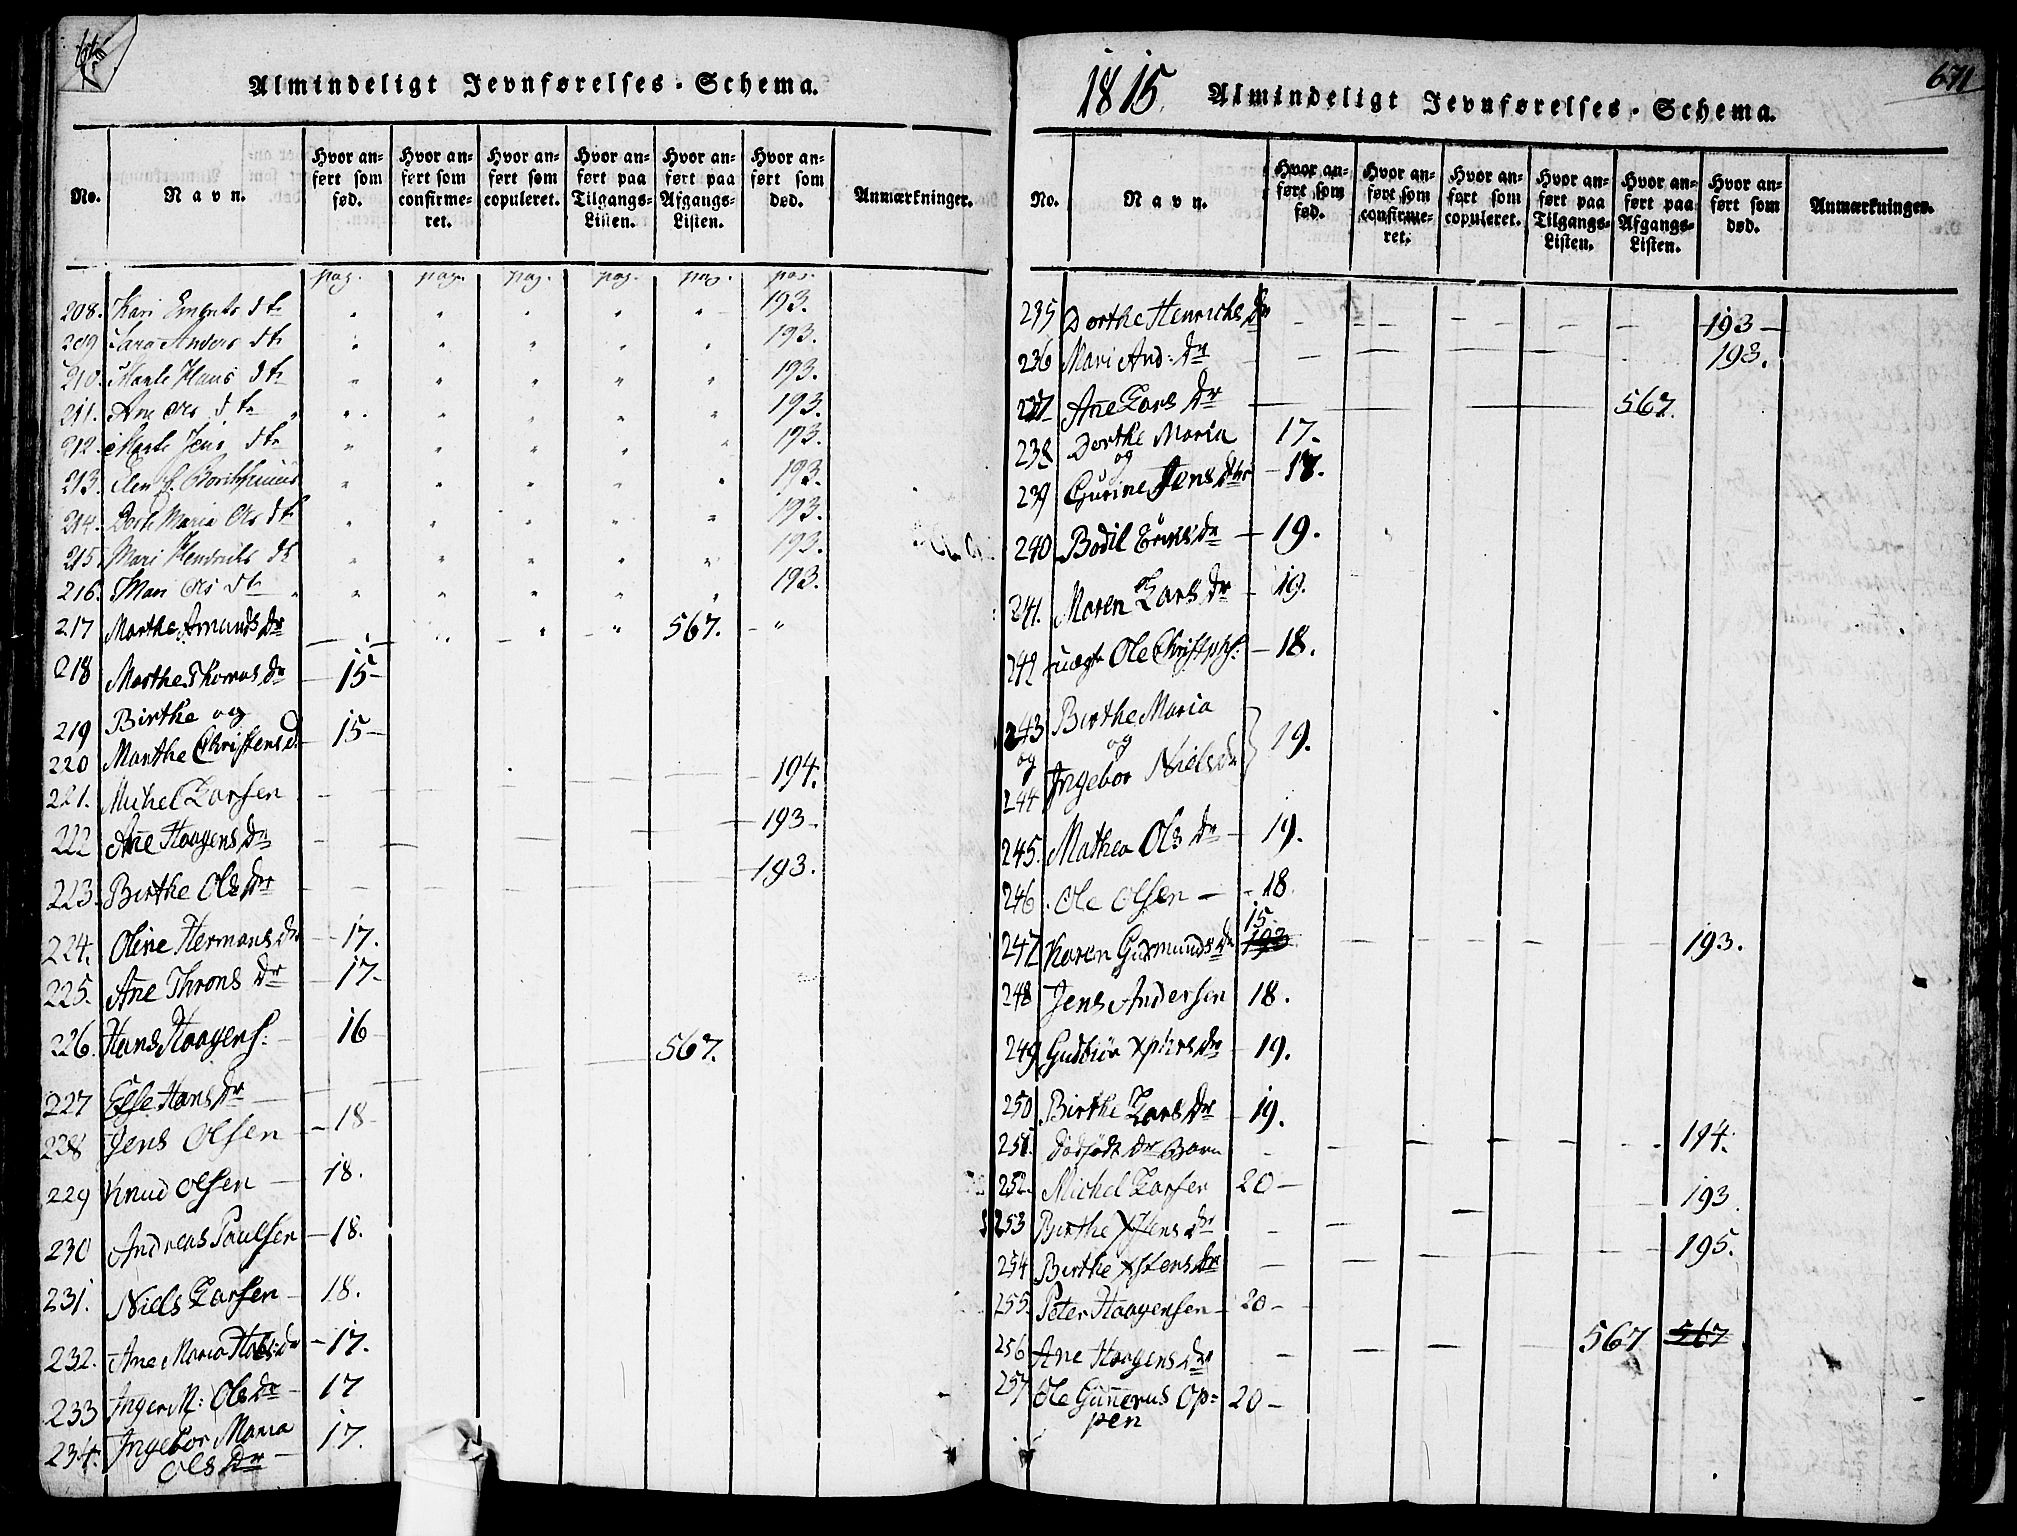 Almindeligt Jevnførelses-Schema.
No. Navn. Hvor anført som fød. Hvor anført som confirmeret. Hvor anført som copuleret. Hvor anført paa Tilgangs-Listen. Hvor anført paa Afgangs-Listen. Hvor anført som død. Anmærkninger.
pag. pag. pag. pag. pag. pag.
208. Kari dtr 193.
209 Anders dtr 193.
210. Marte Hans dtr 193.
211. Ane Ols dtr 193.
212. Marte Jens dtr 193.
213. Elen 193.
214. Maria Ols dtr 193.
215. Mari Hendriks dtr 193.
216. Mari Ols dtr 193.
217 Marthe Amunds Dr 567. "
218 Marthe Thomas Dr 15-
219 Birthe og
220 Marthe Christens D. 15-
221. Michel Larsen 194.
222 Ane Haagens Dr 193-
223. Birthe Ols Dr 193.
224. Oline Hermans Dr 17.
225. Ane Throns Dr 17-
226. Hans Haagens: 16
227 Else Hans Dr 567.
228 Jens Olsen 18-
229 Knud Olsen 18.
230 Andreas Paulsen 18.
231. Niels Larsen 18.
232. Ane Maria Dr 17.
233 Inger M: Ols Dr 17
234. Ingebor Maria
Ols Dr 17.
1815. Almindeligt Jevnførelses-Schema. 671
No. Navn. Hvor anført som fød. Hvor anført som confirmeret. Hvor anført som copuleret. Hvor anført paa Tilgangs-Listen. Hvor anført paa Afgangs-Listen. Hvor anført som død. Anmærkninger.
235 Dorthe Henrichs Dr 193-
236 Mari And: Dr 193.
237 Ane Lars Dr 567.
238 Dorthe Maria 17.
og
239 Gurine Jens Dtr 17.
240 Bodil Eriks Dr 19.
241. Maren Lars Dr 19.
242 uægte Ole Christphs: 18.
243 Birthe Maria
og og
244 Ingebor Niels Dr 19.
245. Mathea Ols Dr 19.
246. Ole Olsen 18.
15.
247 Karen Gudmunds Dr 193 193.
248 Jens Andersen 18.
249 Gudbiør Xphers Dr 19.
250 Birthe Lars Dr 19.
251. dødfødt Dr Barn 194.
252. Michel Larsen 20-
253 Birthe Xstens Dr 193
254 Birthe Xstens Dr 195.
255. Peter Haagensen 20-
256 Ane Haagens Dr 567 567
257 Ole Gunerus Op=
pen 20-